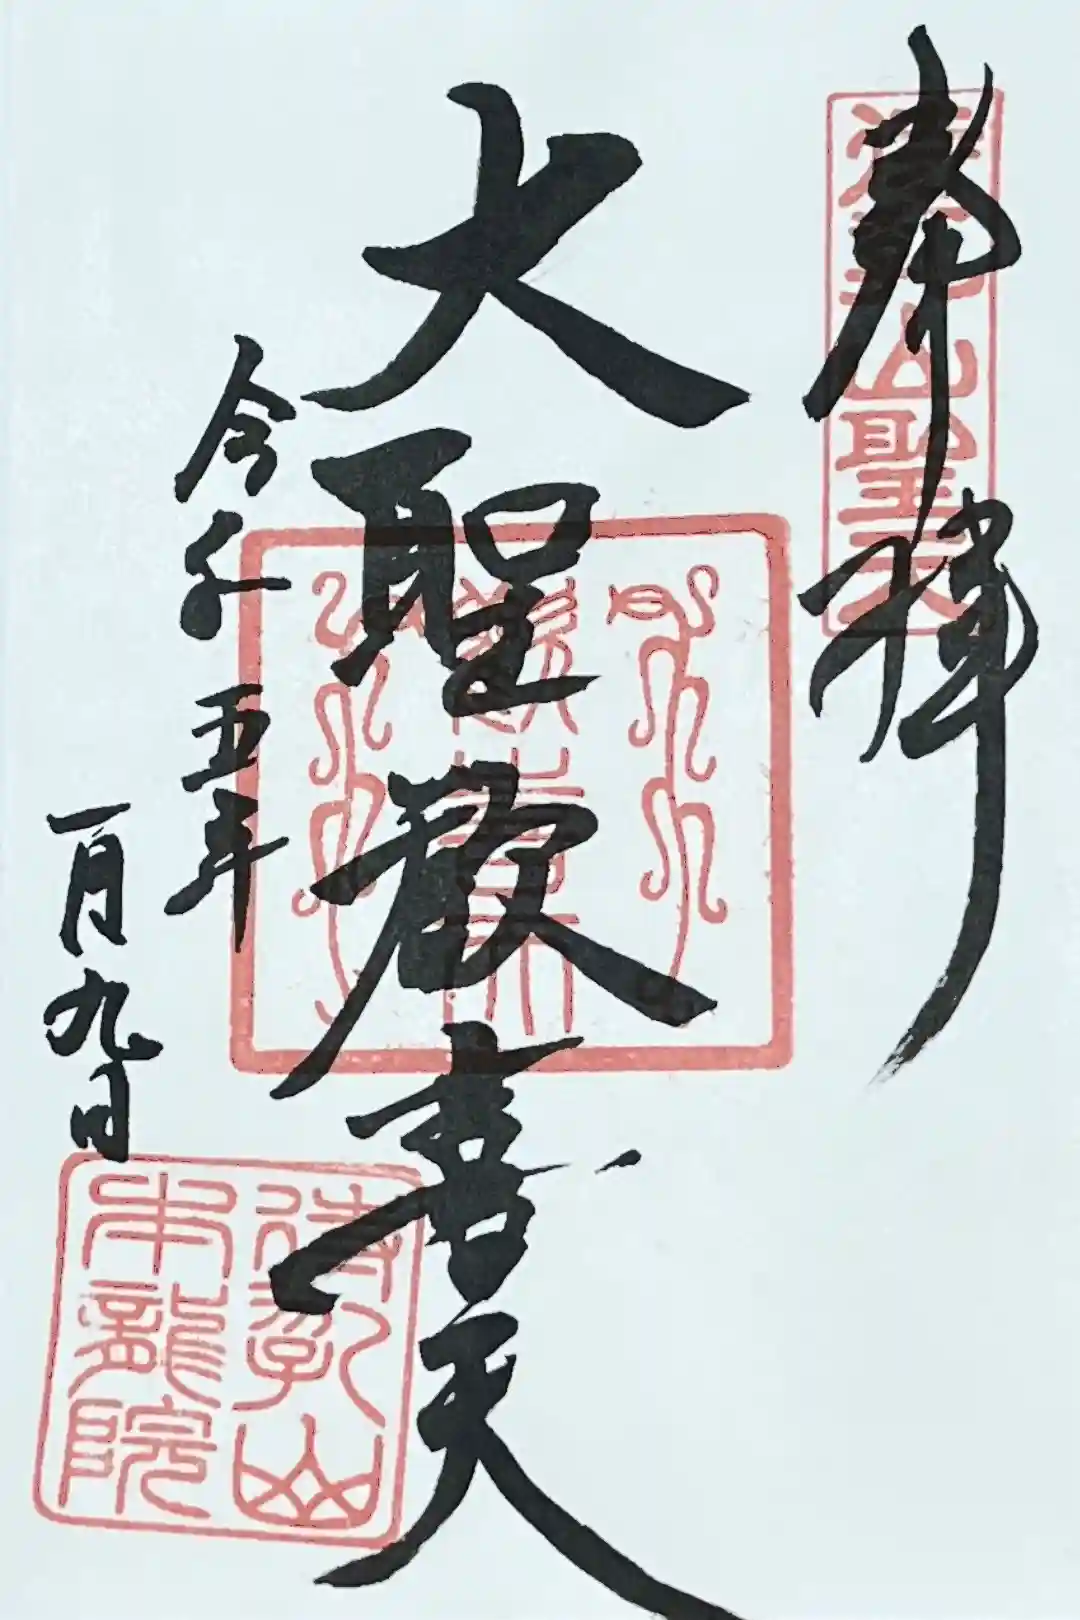 奉拝
浅草山聖天
大聖歓喜天
令和五年
一月九日
待乳山
本龍院